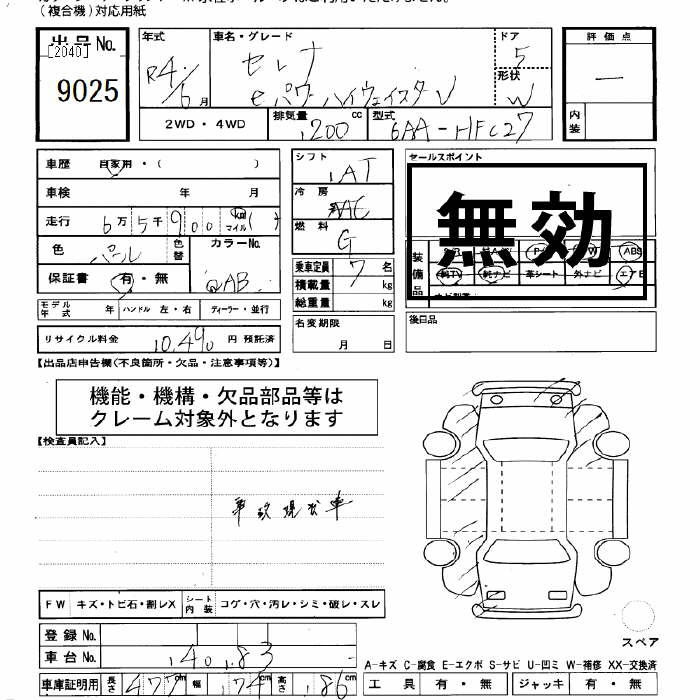 (複合機)対応用紙
出品No.
[2040]
9025
年式
R4/6月
車名・グレード
セレナ
eパワ ハイウェイスタV
ドア
5
形状
W
2WD・4WD
排気量 1200 cc
型式 6AA-HFC27
評価点
内装
車歴 自家用・( )
車検 年 月
走行 6万5千900 km マイル
色 パール 色替
カラーNo. QAB
保証書 有・無
モデル年式 年 ハンドル 左・右 ディーラー・並行
リサイクル料金 10,490 円 預託済
シフト
AT
冷房
燃料
G
乗車定員 7 名
積載量 kg
総重量 kg
名変期限
月 日
セールスポイント
無効
装備品 ABS
革シート 外ナビ エアB
後日品
【出品店申告欄(不良箇所・欠品・注意事項等)】
機能・機構・欠品部品等は
クレーム対象外となります
【検査員記入】
事故現状車
FW キズ・トビ石・割レX シート内装 コゲ・穴・汚レ・シミ・破レ・スレ
登録No.
車台No. 140183
車庫証明用 長さ 477 cm 幅 174 cm 高さ 186 cm
スペア
A-キズ C-腐食 E-エクボ S-サビ U-凹ミ W-補修 XX-交換済
工具 有・無 ジャッキ 有・無